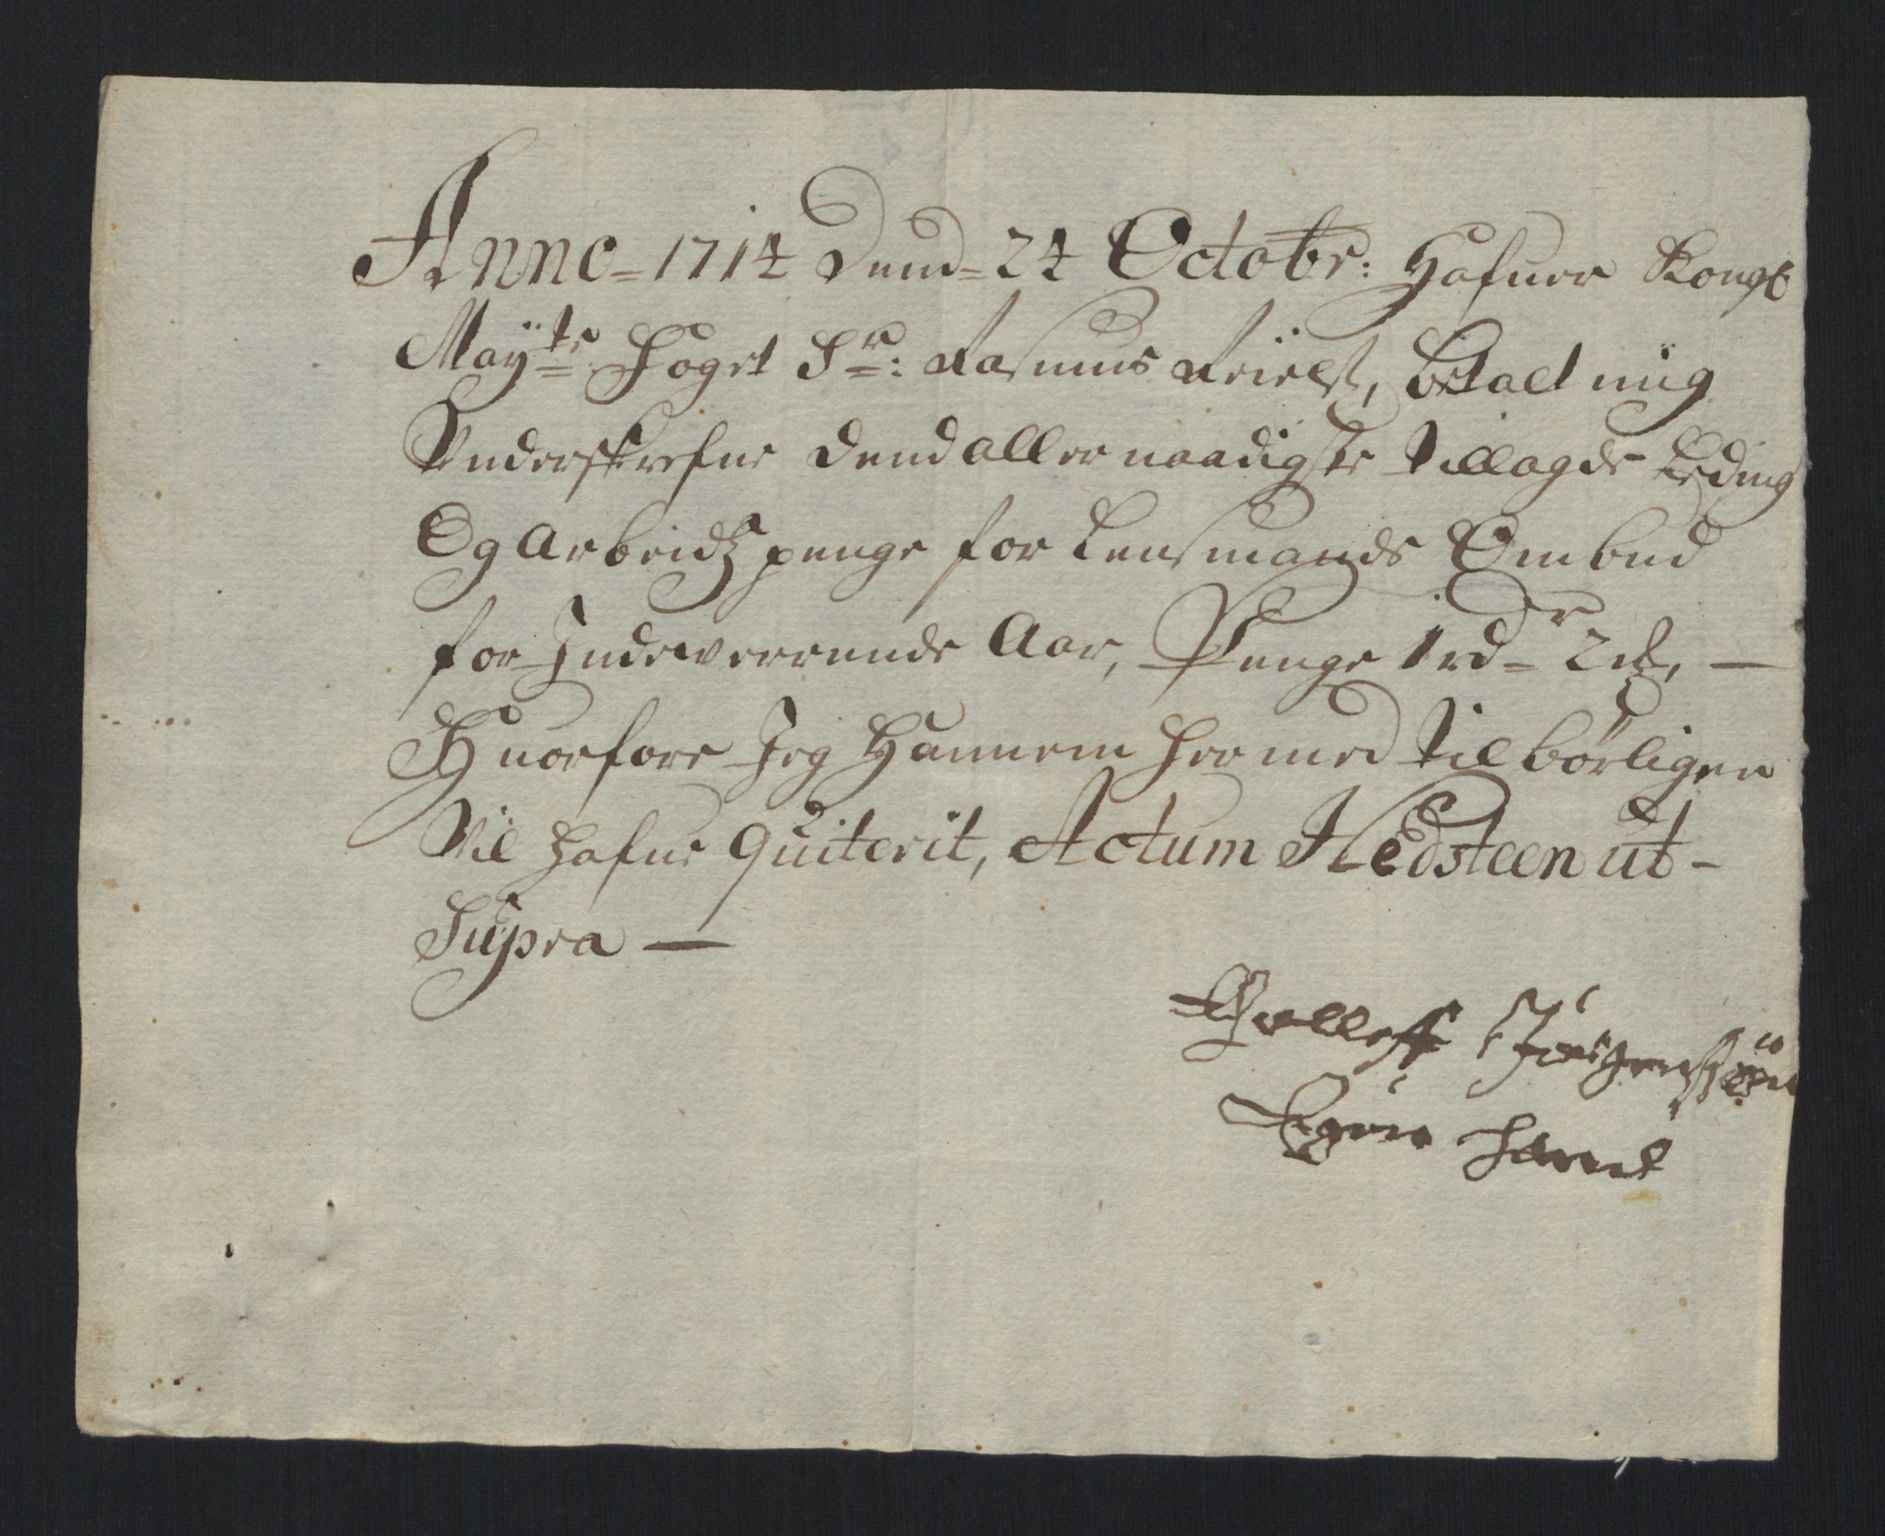 Anno = 1714 Dend = 24 Octobr: Hafuer Kongl
Maÿts: Foget Sr: Rasmus betalt mig
Underskrefne Dend aller naadigste Tillagde Leding
Og Arbeidtz penge for Lensmands Ombud
for Indeverrende Aar, Penge 1 rdr 2 —
Huorfore Jeg Hannem her med Tilbørligen
Vil hafue Quiterit, Actum Hedsteen ut -
Supra —
Jørgensøn
Egen Hand